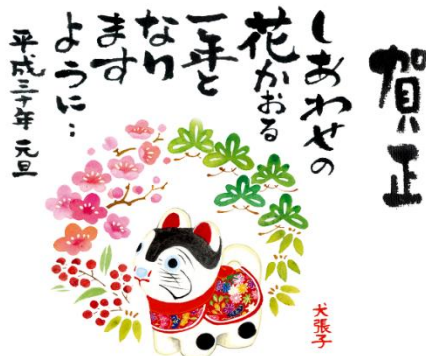 賀正
しあわせの
花かおる
一年と
なり
ます
ように…
平成三十年 元旦
犬張子